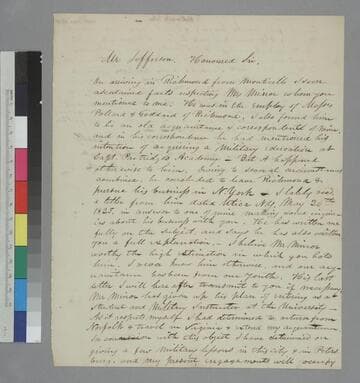 Mr Jefferson. Honoured Sir,
On arriving in Richmond from Monticello I soon
ascertained facts respecting Mr Minor whom you
mentioned to me. He was in the employ of Messrs
Pollard & Goddard of Richmond, I also found him
to be an old acquaintance & correspondent of mine,
and in his correspondence he had mentioned his
intention of acquiring a Military education at
Capt. Partridge's Academy — But it happened
otherwise to him, owing to several circumstances
combined, he concluded to leave Richmond &
pursue his business in N. York — I lately recd
a letter from him dated Utica N.Y. May 20th
1825. in answer to one of mine making some inquiries
about his business with you. He has written me
fully on the subject, and says he has also written
you a full explanation. I believe Mr Minor
worthy the high estimation in which you hold
him. I never knew him otherwise, and our acquaintance
has been from our Youth. His last
letter I will hereafter transmit to you if necessary
Mr Minor has given up his plan of entering as a
Student and Military Instructor at the University
As it respects myself I had determined to return from
Norfolk & travel in Virginia & extend my acquaintance
In connexion with this object I have determined on
giving a few Military lessons in this city & in Petersburg,
and my present engagements will occupy